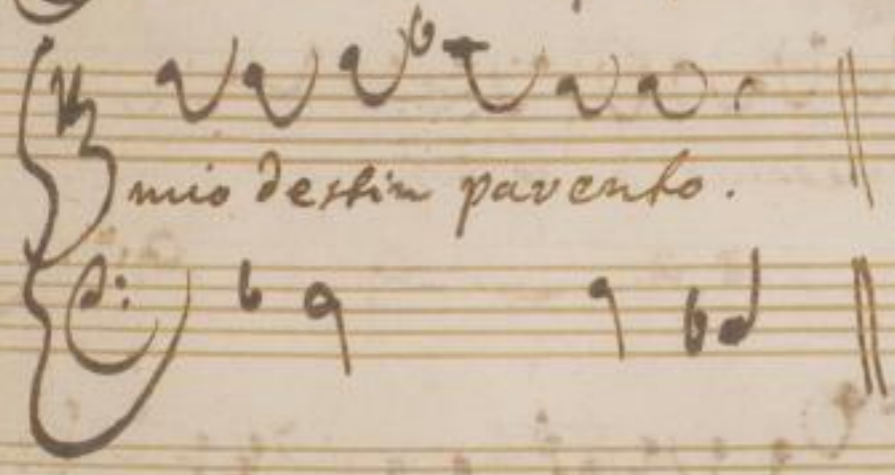 mio destin pavento.